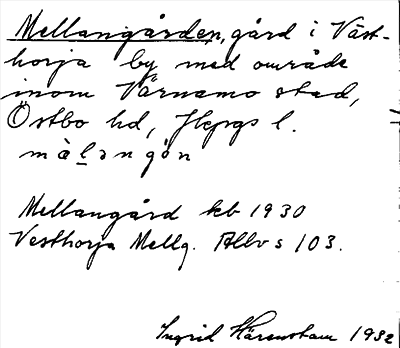 Mellangården, gård i Väst-
horja by med område
inom Värnamo stad,
Östbo hd, Jkpgs l.
màl̲əngɷ́n
Mellangård kb 1930
Vesthorja Mellg. Allv s 103.
Ingrid Härenstam 1932